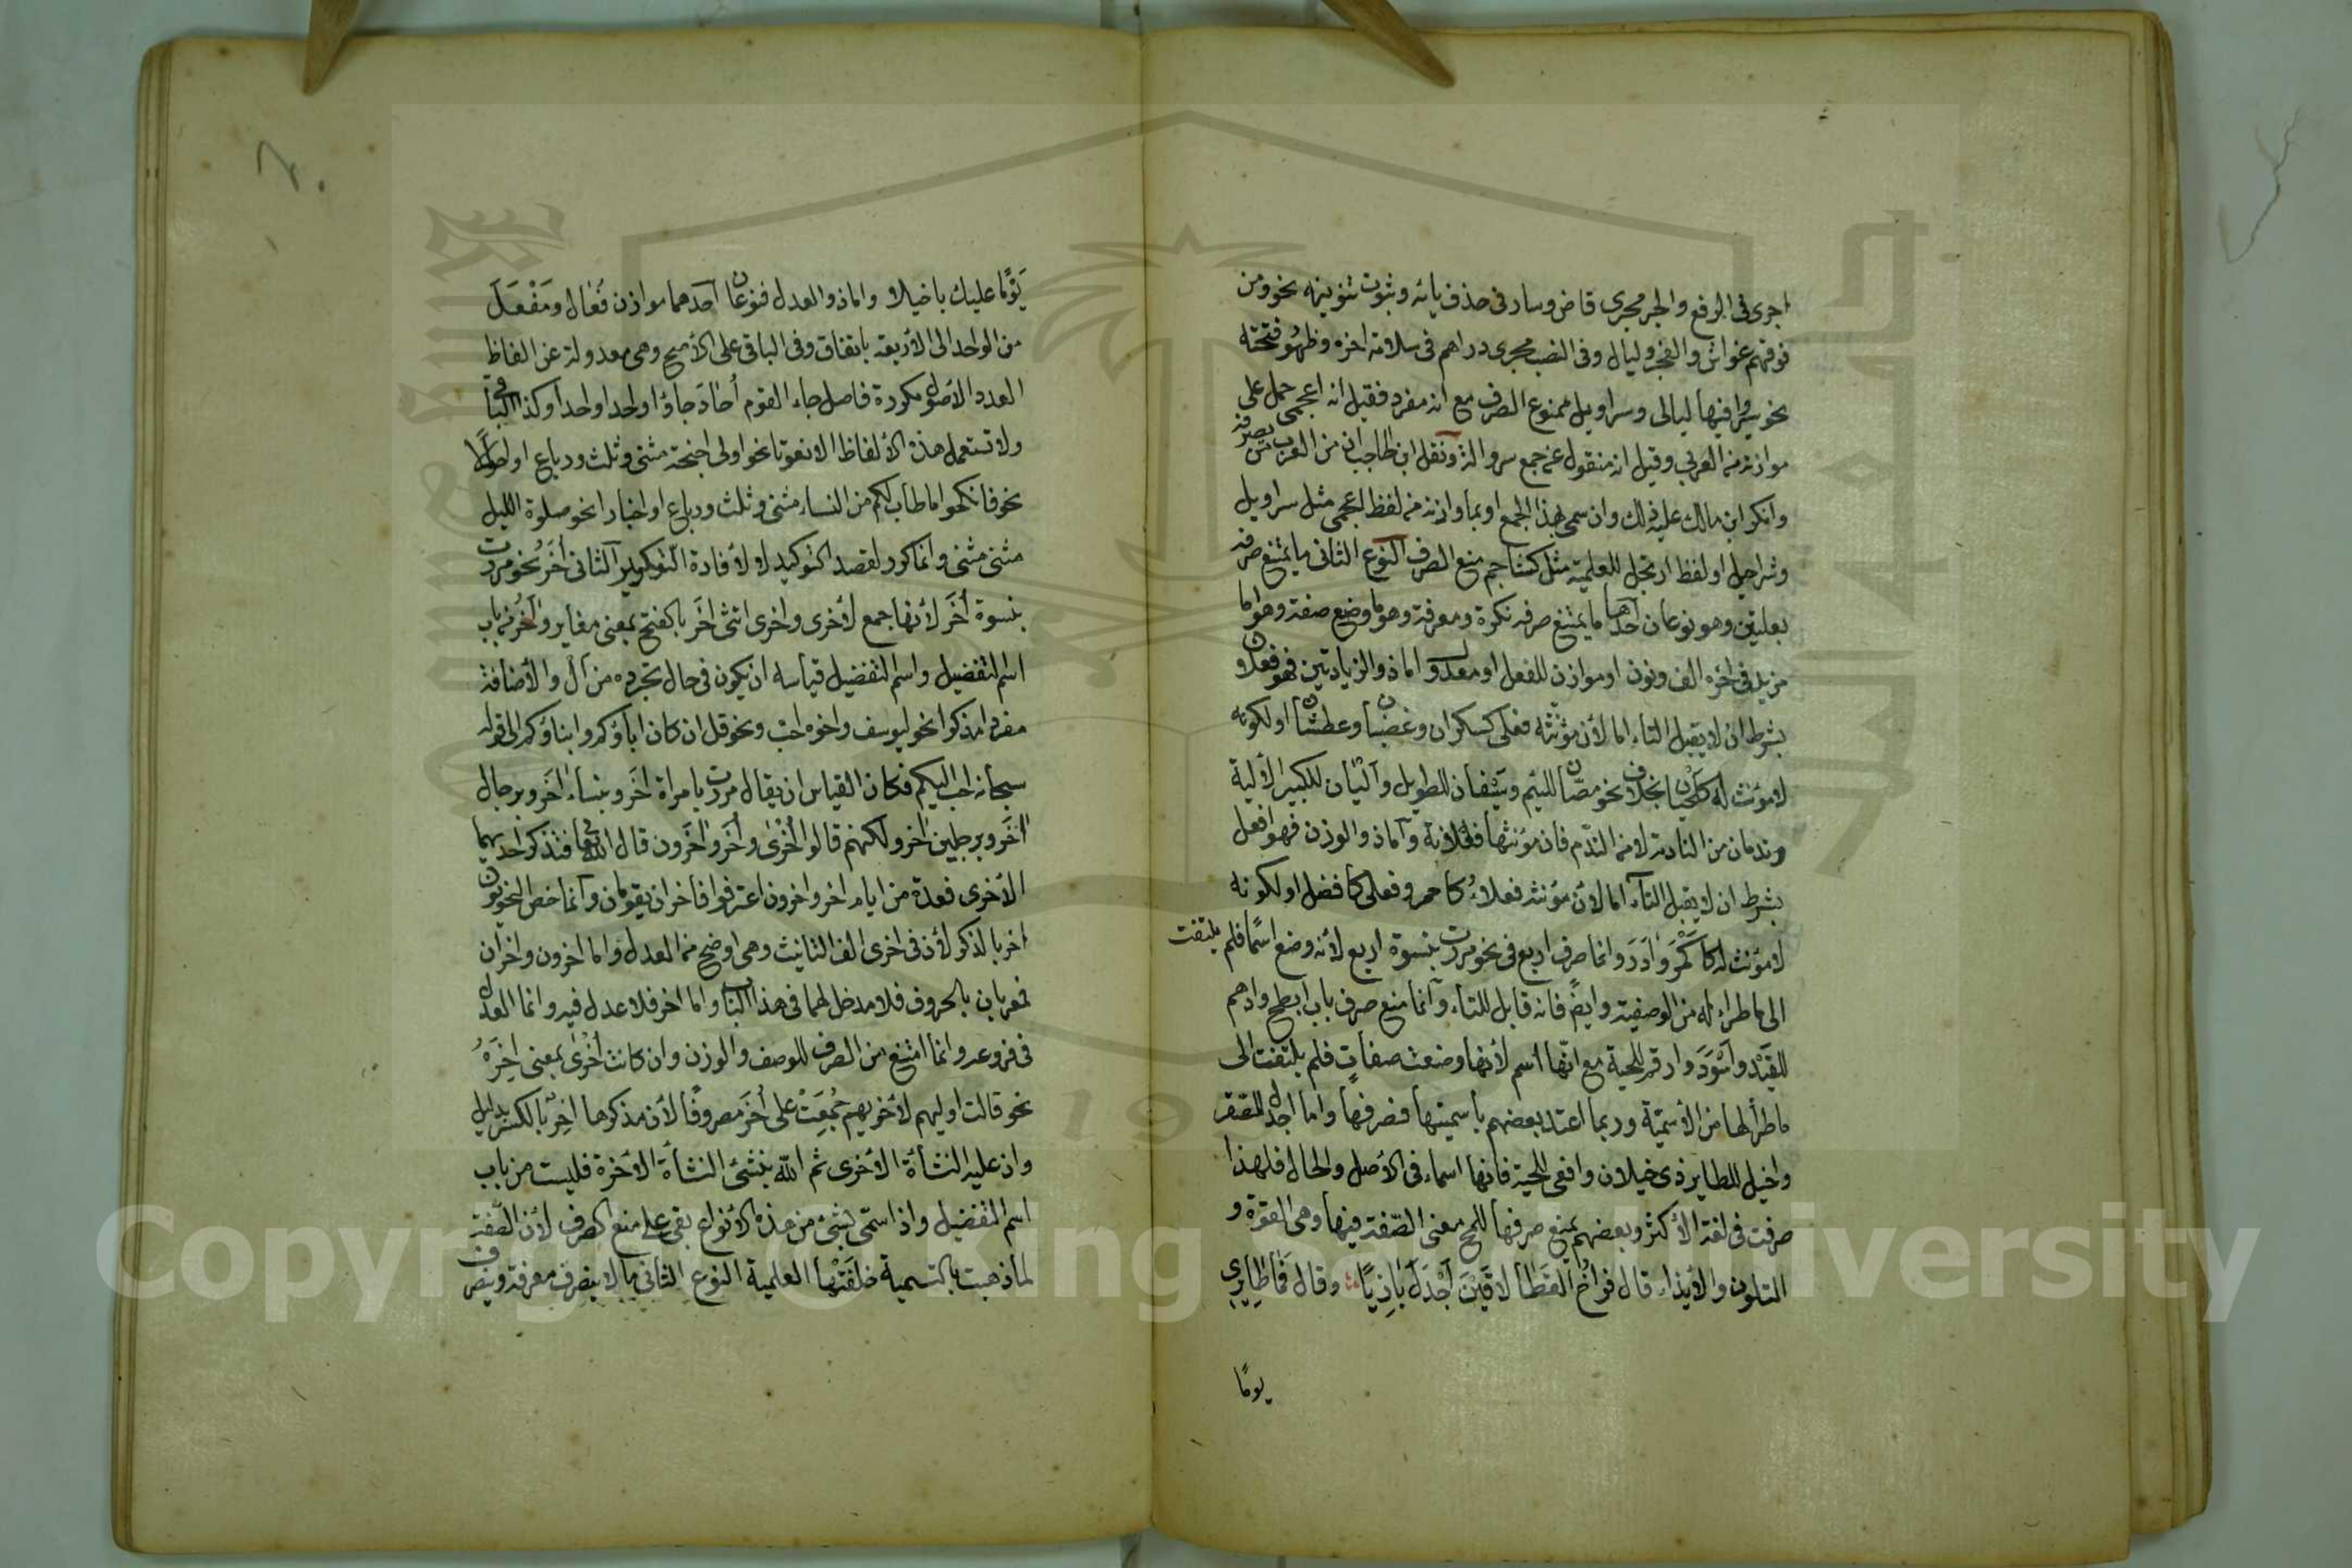 اجرى فى الرفع والجر مجرى قاض وسار فى حذف يائه وثبوت تنوينه نحو ومن
فوقهم غواش والفجر وليال وفى النصب مجرى دراهم فى سلامة اخره وظهور فتحته
نحو سيروا فيها ليالى وسراويل ممنوع الصرف مع انه مفرد فقيل انه اعجمى حمل على
موازنه من العربى وقيل انه منقول عن جمع سروالة ونقل ابن الحاجب ان من العرب من يصرفه
وانكر ابن مالك عليه ذلك وان سمى بهذا الجمع او بما وازنه من لفظ اعجمى مثل سراويل
وشراحيل او لفظ ارتجل للعلمية مثل كشاجم منع الصرف النوع الثانى ما يمتنع صرفه
بعلتين وهو نوعان احدهما ما يمتنع صرفه نكرة ومعرفة وهو ما وضع صفة وهو اما
مزيد فى اخره الف ونون او موازن للفعل او معدول اما ذو الزيادتين فهو فعلان و
بشرط ان لا يقبل التاء اما لأن مؤنثه فعلى كسكران وغضبان وعطشان او لكونه
لا مؤنث له كلحيان بخلاف نحو مصان للئيم وسيفان للطويل وأليان للكبير الألية
وندمان من المنادمة لا من الندم فان مؤنثها فعلانة وأما ذو الوزن فهو افعل
بشرط ان لا يقبل التآء اما لأن مؤنثه فعلاءُ كاحمر وفعلى كافضل او لكونه
لا مؤنث له كاكمر وآدر وانما صرف اربع فى نحو مررت بنسوة اربع لأنه وضع اسمًا فلم يلتفت
الى ما طراء له من الوصفية وايضً فانه قابل للتاء وانما منع صرف باب ابطح وادهم
للقيد واسود وارقم للحية مع انها اسم لأنها وضعت صفات فلم يلتفت الى
ما طرأ لها من الأسمية وربما اعتد بعضهم باسميتها فصرفها واما اجدل للصقر
واخيل للطاير ذى خيلان وافعى للحية فانها اسماء فى الأصل والحال فلهذا
صرفت فى لغة الأكثر وبعضهم يمنع صرفها للمح معنى الصفة فيها وهى القوة و
التلون والأيذاء قال فراخ القطا لاقين اجدل بازيًا وقال فما طايرى
يومًا
يومًا عليك باخيلا واما ذو العدل فنوعان احدهما موازن فُعال ومَفْعَل
من الواحد الى الأربعة باتفاق وفى الباقى على الأصح وهى معدولة عن الفاظ
العدد الأصول مكررة فاصل جاء القوم أُحاد جاؤا واحدا واحدا وكذا الباقى
ولا تستعمل هذه الألفاظ الا نعوتا نحو اولى اجنحة مثنى وثلث ورباع او احوالا
نحو فانكحوا ما طاب لكم من النساء مثنى وثلث ورباع او اخبارا نحو صلوة الليل
مثنى مثنى وانما كرر لقصد التوكيد لا لأفادة التكرير الثانى أُخَرُ نحو مررت
بنسوة أُخَرَ لأنها جمع لأخرى واخرى انثى آخَر بالفتح بمعنى مغاير وآخر من باب
اسم التفضيل واسم التفضيل قياسه ان يكون فى حال تجرده من ال والأضافة
مفردا مذكرا نحو ليوسف واخوه احب ونحو قل ان كان اباؤكم وابناؤكم الى قوله
سبحانه احب اليكم فكان القياس ان يقال مررت بامراة اخَر وبنساء اخَر وبرجال
اخَر وبرجلين اخر ولكنهم قالوا اُخْرى وأُخَر واخَرون قال الله تعالى فتذكر احديهما
الأخرى فعدة من ايام اخر واخرون اعترفوا فاخران يقومان وانما خص النحويون
اخر بالذكر لأن فى اخرى الف التانيث وهى اوضح من العدل واما اخرون واخران
فمعربان بالحروف فلا مدخل لهما فى هذا الباب واما اخر فلا عدل فيه وانما العدل
فى فروعه وانما امتنع من الصرف للوصف والوزن وان كانت أُخْرى بمعنى اخِرَة
نحو قالت اوليهم لأخريهم جُمِعَتْ على أُخَر مصروفًا لأن مذكرها اخِر بالكسر بدليل
وان عليه النشأة الأخرى ثم الله ينشئ النشأة الأخرة فليست من باب
اسم التفضيل واذا سمّى بشئ من هذه الأنواع بقى على منع الصرف لأن الصّفة
لما ذهبت بالتسمية خلفَتْها العلمية النوع الثانى ما لا ينصرف معرفة وينصرف